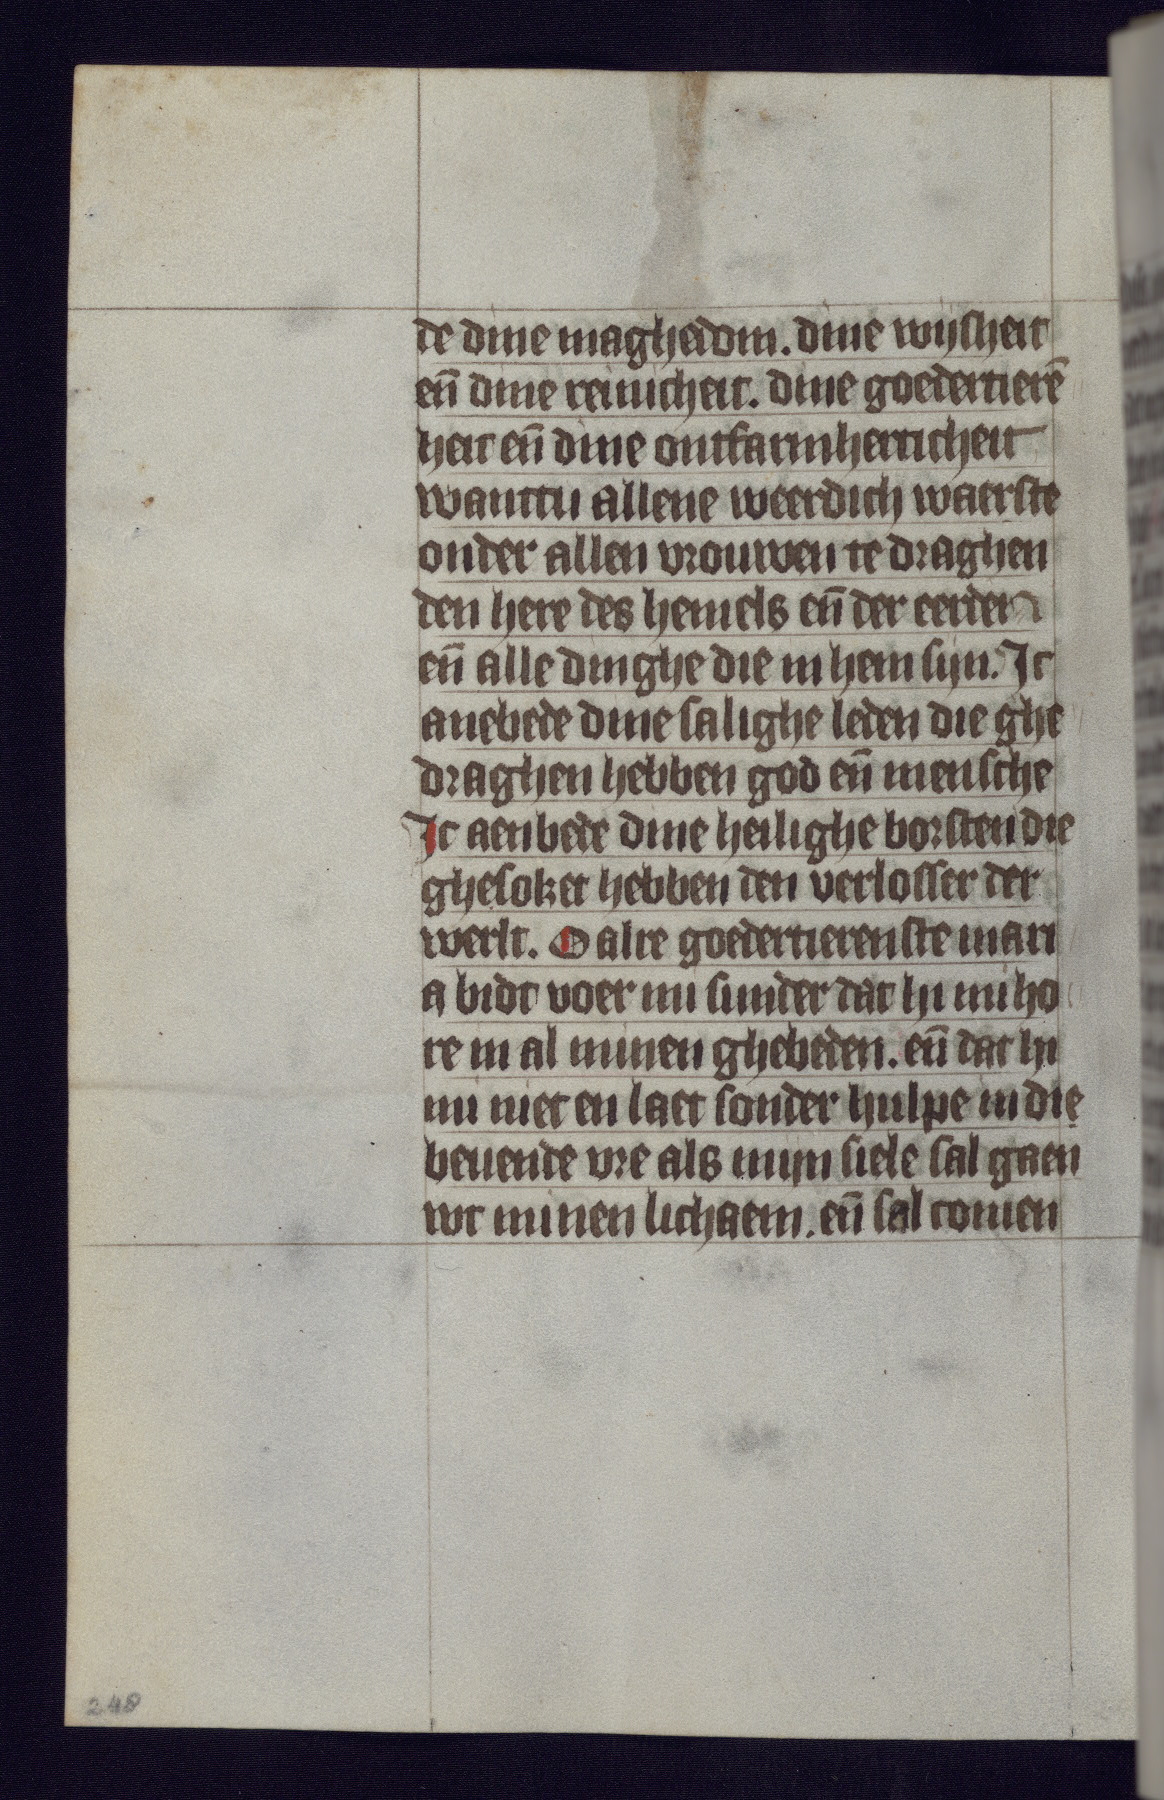 de dine maghedom. dine wijsheit
eñ dine reinicheit. dine goedertierē
heit eñ dine ontfarmherticheit
wanttu allene weerdich waerste
onder allen vrouwen te draghen
den here des hemels eñ der eerden
eñ alle dinghe die in hem sijn. Ic
anebede dine salighe leden die ghe
draghen hebben god eñ mensche
Ic aenbede dine heilighe borsten die
ghesoket hebben den verlosser der
werlt. O alre goedertierenste mari
a bidt voer mi sunder dat hi mi ho
re in al minen ghebeden. eñ dat hi
mi niet en laet sonder hulpe in die
beuende vre als mijn siele sal gaen
wt minen lichaem. eñ sal comen
248